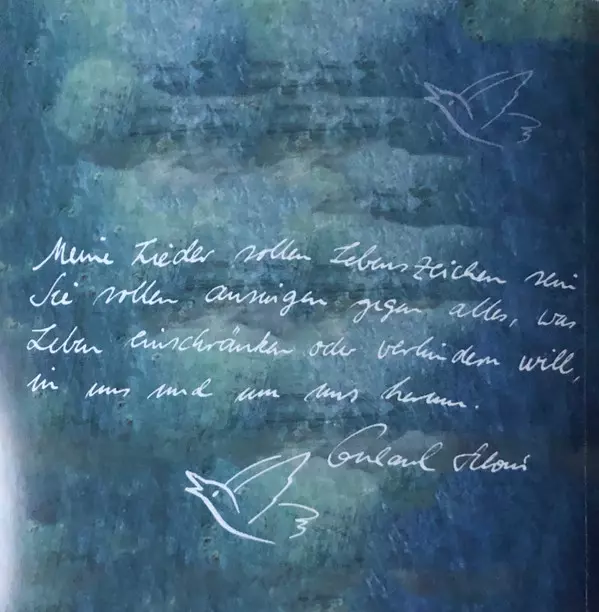 Meine Lieder sollen Lebenszeichen sein
Sie sollen ansingen gegen alles, was
Leben einschränken oder verhindern will,
in uns und um uns herum.
Gerhard Schöne